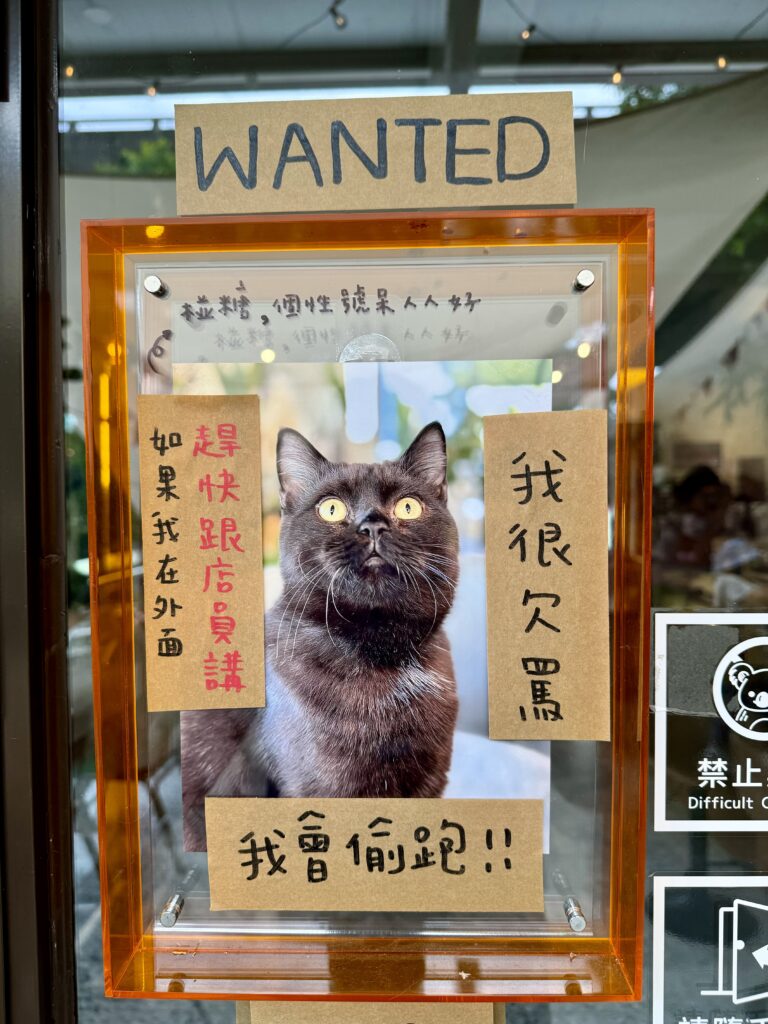 WANTED
椪糖,個性號呆人人好
如果我在外面
趕快跟店員講
我很欠罵
我會偷跑!!
禁止
Difficult